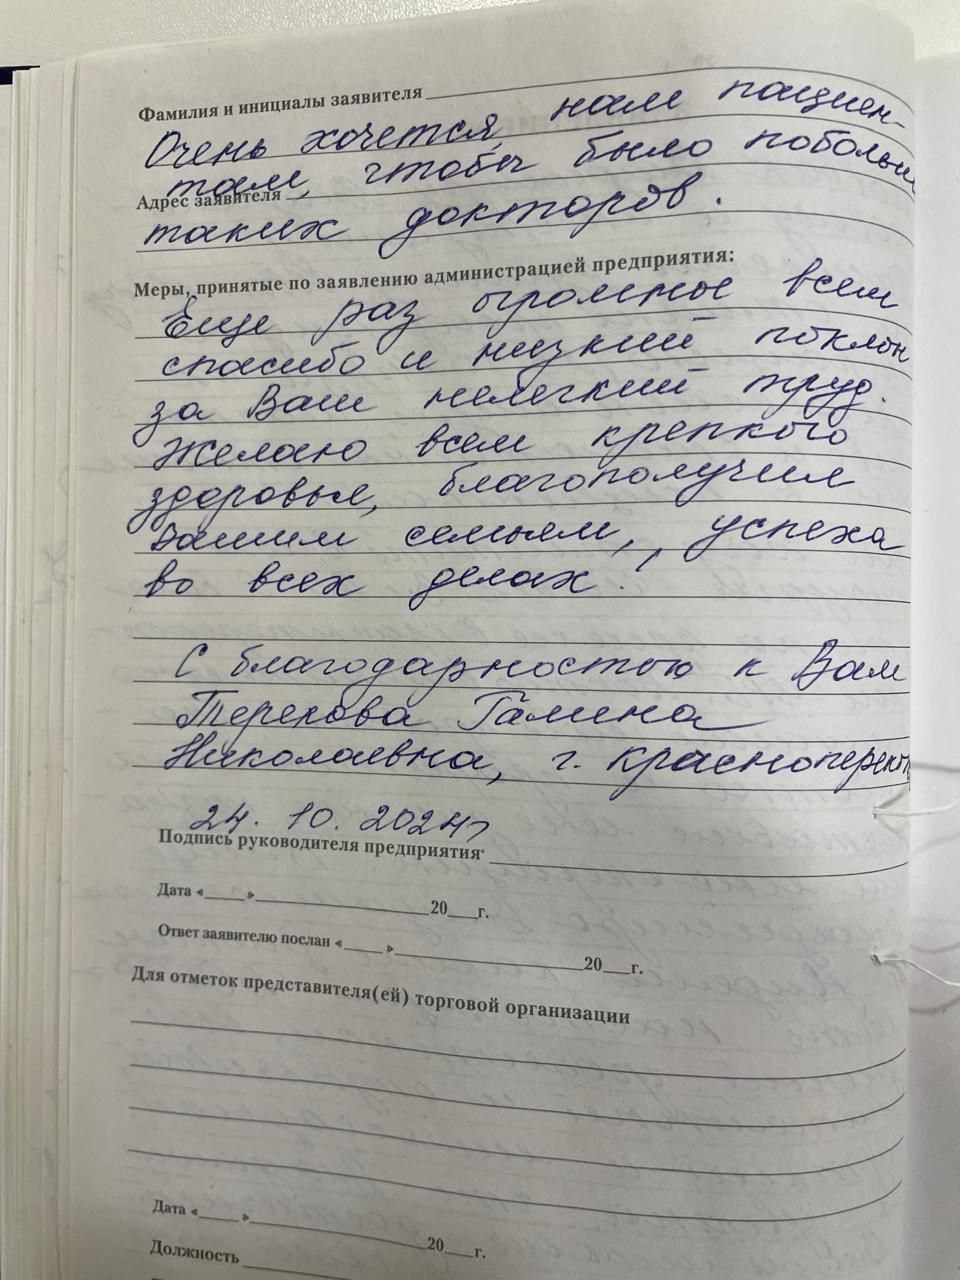 Фамилия и инициалы заявителя
Очень хочется нам пациен-
там, чтобы было побольше
Адрес заявителя
таких докторов.
Меры, принятые по заявлению администрацией предприятия:
Еще раз огромное всем
спасибо и низкий поклон
за Ваш нелегкий труд.
Желаю всем крепкого
здоровья, благополучия
Вашим семьям, успеха
во всех делах!
С благодарностью к Вам
Терехова Галина
Николаевна, г. Красноперекоп
24. 10. 2024г
Подпись руководителя предприятия
Дата «____»____20___г.
Ответ заявителю послан «____»____20___г.
Для отметок представителя(ей) торговой организации
Дата «____»____20___г.
Должность